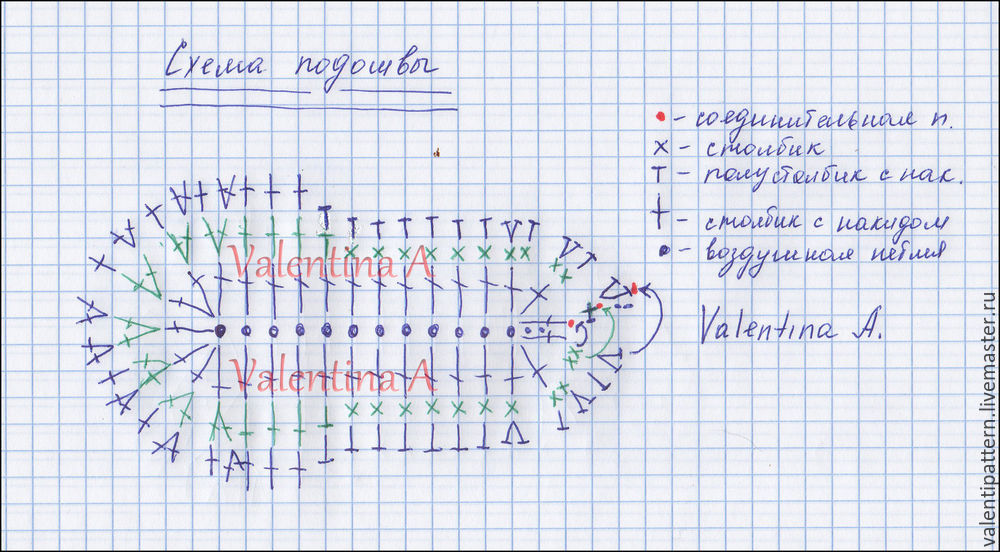 Схема подошвы
• - соединительная п.
x - столбик
т - полустолбик с нак.
† - столбик с накидом
• - воздушная петля
Valentina A.
Valentina A.
Valentina A.
valentipattern.livemaster.ru